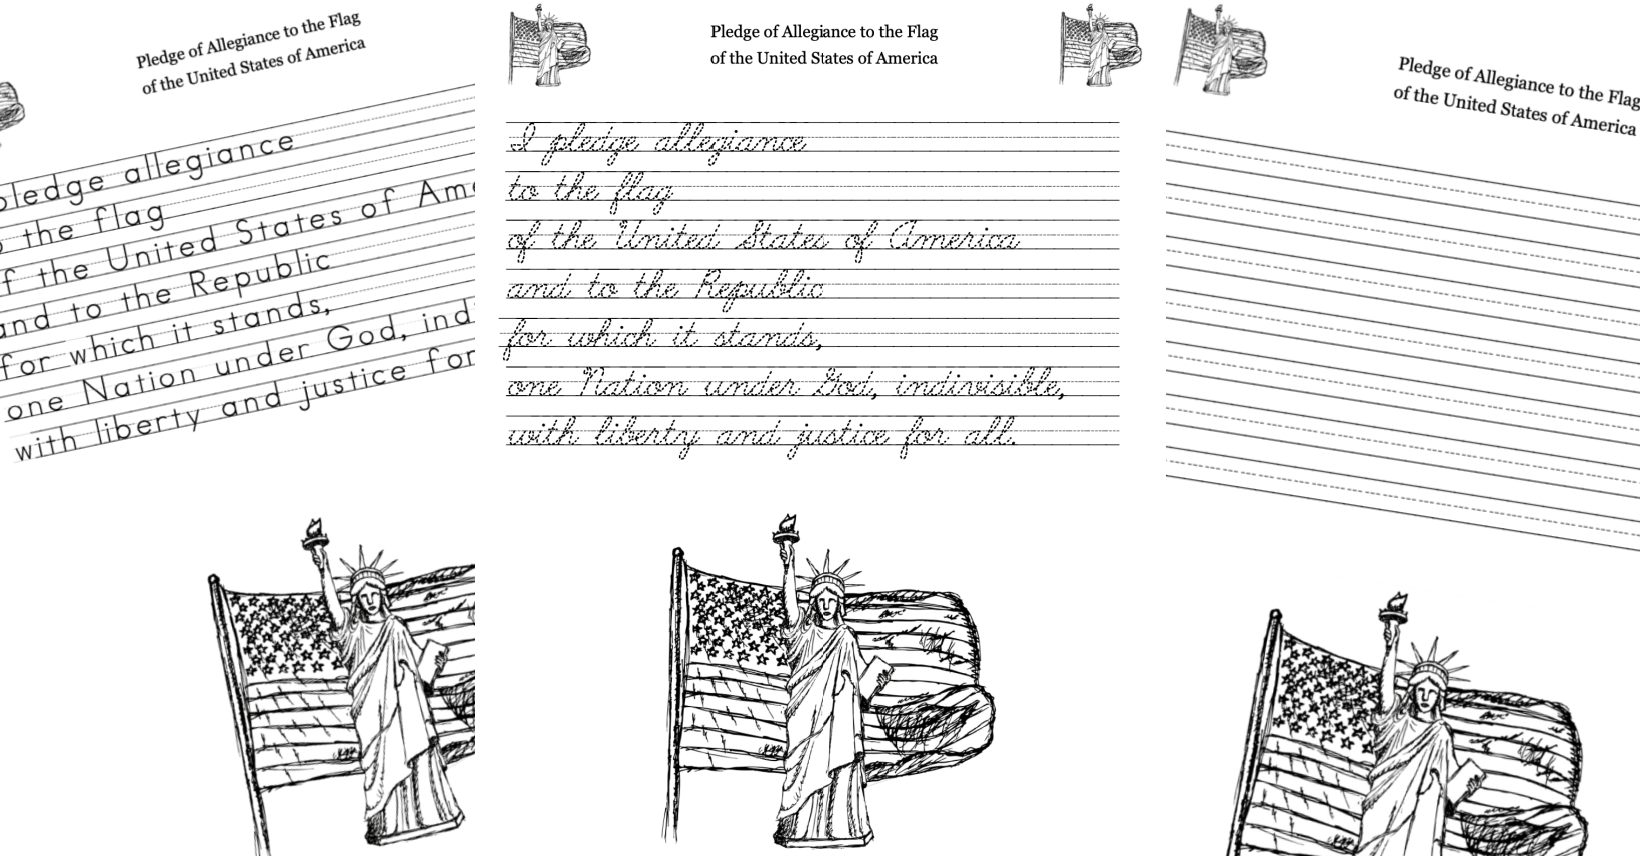 Pledge of Allegiance to the Flag
of the United States of America
pledge allegiance
the flag
the United States of
and to the Republic
for which it stands,
one Nation under God, ind
with liberty and justice for
Pledge of Allegiance to the Flag
of the United States of America
I pledge allegiance
to the flag
of the United States of America
and to the Republic
for which it stands,
one Nation under God, indivisible,
with liberty and justice for all.
Pledge of Allegiance to the Flag
of the United States of America